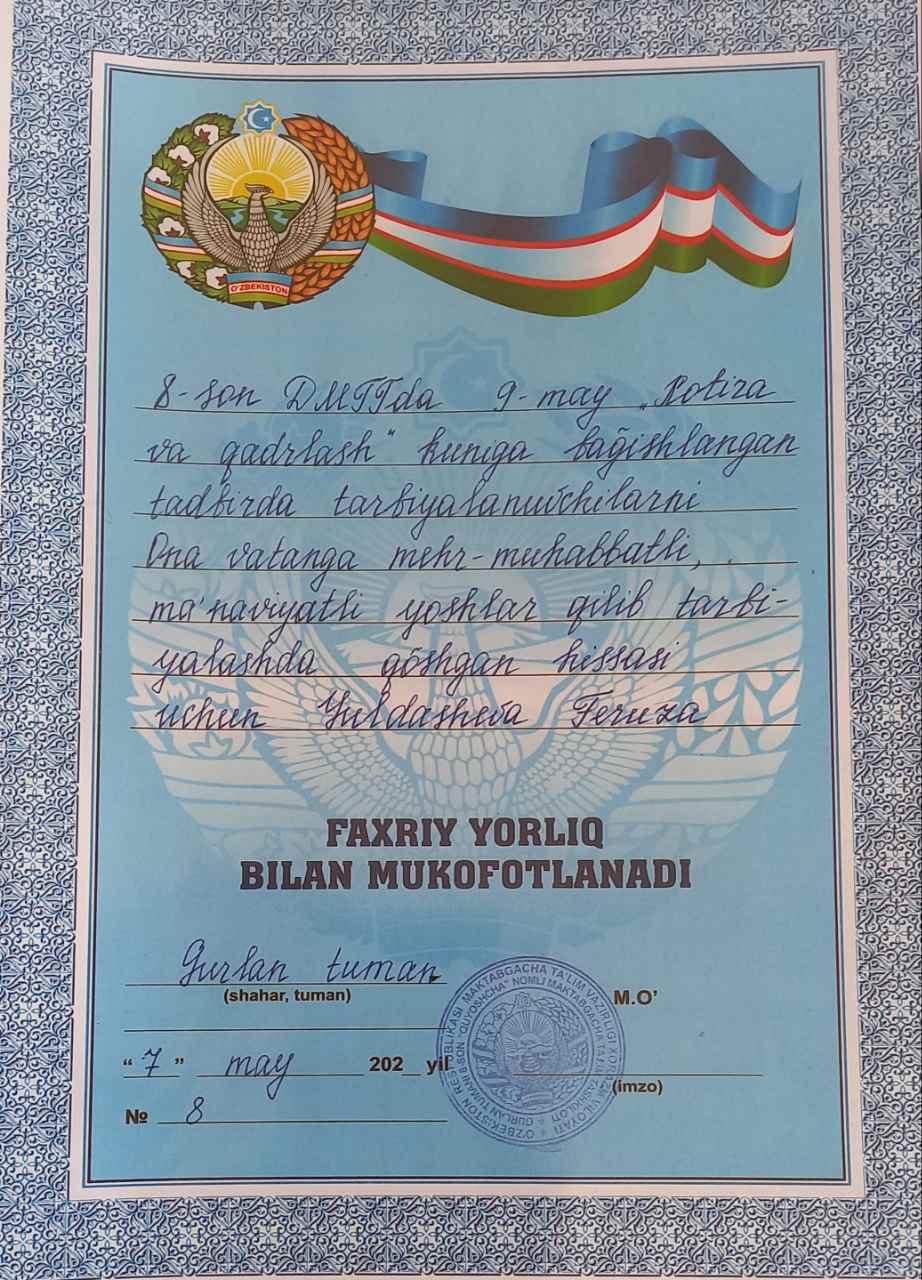 O'ZBEKISTON
8-son DMTTda 9-may „Xotira
va qadrlash" kuniga bağishlangan
tadbirda tarbiyalanuvchilarni
Ona vatanga mehr-muhabbatli,
ma'naviyatli yoshlar qilib tarbi-
yalashda qõshgan hissasi
uchun Yuldasheva Feruza
FAXRIY YORLIQ
BILAN MUKOFOTLANADI
Gurlan tuman
(shahar, tuman)
M.O'
“ 7 ” may 202__ yil
(imzo)
№ 8
O'ZBEKISTON RESPUBLIKASI MAKTABGACHA TA'LIM VAZIRLIGI
GURLAN TUMANI 8-SON "QUYOSHCHA" NOMLI MAKTABGACHA TA'LIM TASHKILOTI